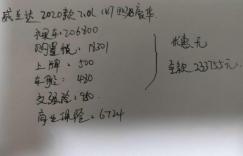 威兰达 2020款 2.0L 四驱豪华
裸车：206800
购置税：18301
上牌：500
车船：480
交强险：950
商业保险：6724
优惠无
全款 233755元